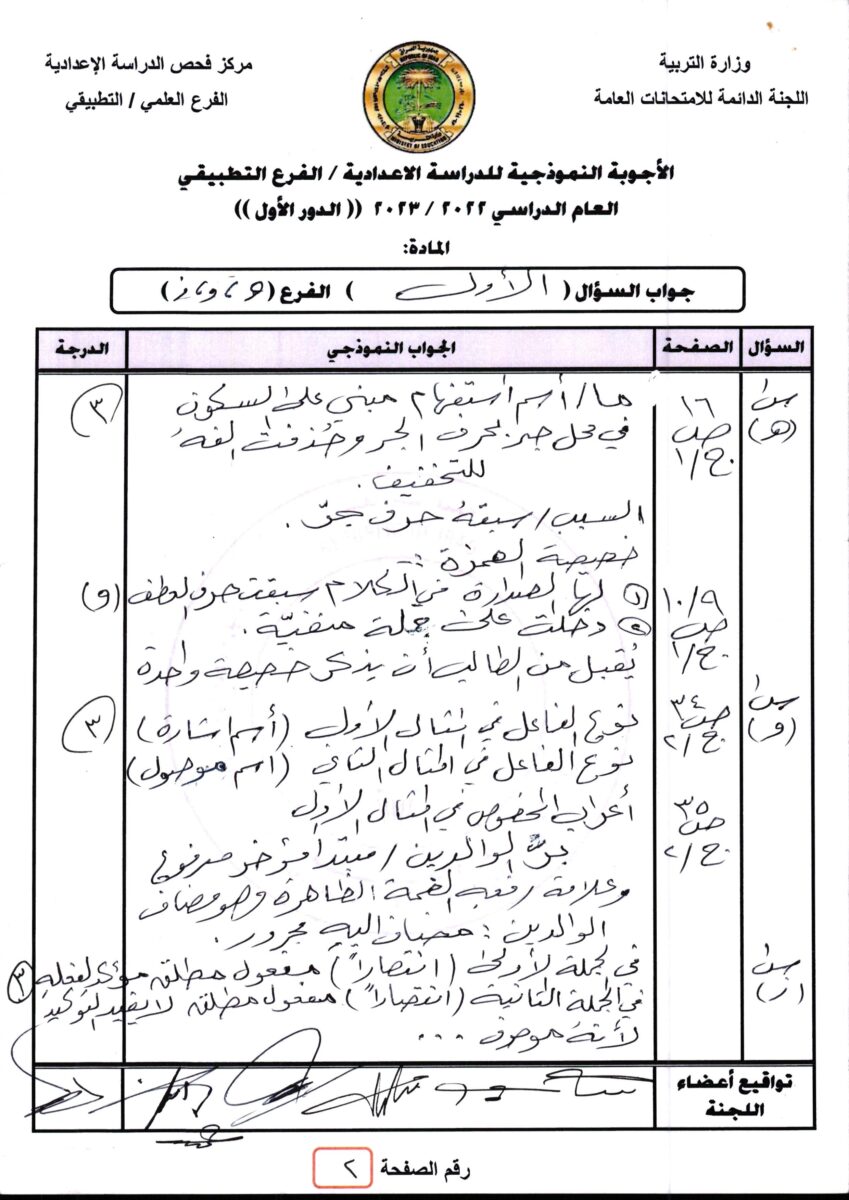 وزارة التربية
اللجنة الدائمة للامتحانات العامة
مركز فحص الدراسة الإعدادية
الفرع العلمي / التطبيقي
جمهورية العراق
REPUBLIC OF IRAQ
MINISTRY OF EDUCATION
الأجوبة النموذجية للدراسة الاعدادية / الفرع التطبيقي
العام الدراسي ٢٠٢٢ / ٢٠٢٣ (( الدور الأول ))
المادة:
جواب السؤال ( الأول ) الفرع ( هـ ، و ، ز )
السؤال الصفحة الجواب النموذجي الدرجة
س١ ١٦ ما / أسم استفهام مبني على السكون ٣
(هـ) ص في محل جر بحرف الجر وحُذفت الفهُ
ج/١ للتخفيف.
السبب / سبقهُ حرف جرّ .
خصيصة الهمزة :
١٠/٩ ① لها الصدارة في الكلام سبقت حرف العطف (و)
ص ② دخلت على جملة منفيّة .
ج/١ يُقبل من الطالب أن يذكر خصيصة واحدة
س١ ص٣٤ نوع الفاعل في المثال الأول (أسم اشارة) ٣
(و) ج/٢ نوع الفاعل في المثال الثاني (اسم موصول)
ص٣٥ أعراب المخصوص في المثال الأول
ج/٢ برُّ الوالدين / مبتدأ مؤخر مرفوع
وعلامة رفعه الضمة الظاهرة وهو مضاف
الوالدين : مضاف اليهِ مجرور .
س١ في الجملة الأولى (انتصاراً) مفعول مطلق مؤكد لفعلهِ ٣
(ز) في الجملة الثانية (انتصاراً) مفعول مطلق لا يفيد التوكيد
لأنهُ موصوف ...
تواقيع أعضاء
اللجنة
رقم الصفحة ٢